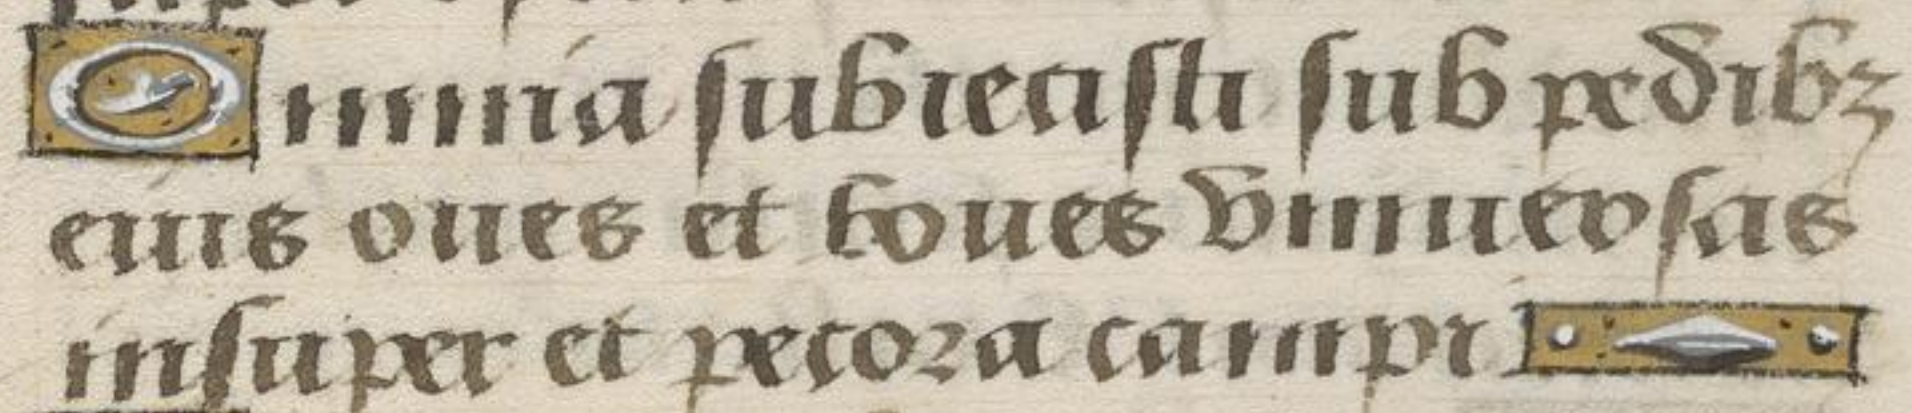 Omnia subiecisti sub pedibꝫ
eius oues et boues vniuersas
insuper et pecora campi